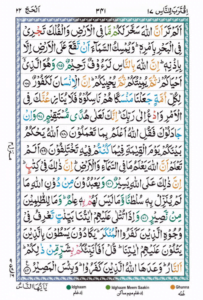 اِقْتَرَبَ لِلنَّاسِ ١٧ ٣٤١ اَلْحَجّ ٢٢
اَلَمْ تَرَ اَنَّ اللّٰهَ سَخَّرَ لَكُمْ مَّا فِي الْاَرْضِ وَالْفُلْكَ تَجْرِيْ
فِي الْبَحْرِ بِاَمْرِهٖ وَيُمْسِكُ السَّمَآءَ اَنْ تَقَعَ عَلَى الْاَرْضِ
اِلَّا بِاِذْنِهٖ اِنَّ اللّٰهَ بِالنَّاسِ لَرَءُوْفٌ رَّحِيْمٌ وَهُوَ الَّذِيْۤ
اَحْيَاكُمْ ثُمَّ يُمِيْتُكُمْ ثُمَّ يُحْيِيْكُمْ اِنَّ الْاِنْسَانَ لَكَفُوْرٌ
لِكُلِّ اُمَّةٍ جَعَلْنَا مَنْسَكًا هُمْ نَاسِكُوْهُ فَلَا يُنَازِعُنَّكَ فِي
الْاَمْرِ وَادْعُ اِلٰى رَبِّكَ اِنَّكَ لَعَلٰى هُدًى مُّسْتَقِيْمٍ وَاِنْ
جَادَلُوْكَ فَقُلِ اللّٰهُ اَعْلَمُ بِمَا تَعْمَلُوْنَ اَللّٰهُ يَحْكُمُ
بَيْنَكُمْ يَوْمَ الْقِيٰمَةِ فِيْمَا كُنْتُمْ فِيْهِ تَخْتَلِفُوْنَ اَلَمْ
تَعْلَمْ اَنَّ اللّٰهَ يَعْلَمُ مَا فِي السَّمَآءِ وَالْاَرْضِ اِنَّ ذٰلِكَ فِيْ كِتٰبٍ
اِنَّ ذٰلِكَ عَلَى اللّٰهِ يَسِيْرٌ وَيَعْبُدُوْنَ مِنْ دُوْنِ اللّٰهِ
مَا لَمْ يُنَزِّلْ بِهٖ سُلْطٰنًا وَّمَا لَيْسَ لَهُمْ بِهٖ عِلْمٌ وَمَا لِلظّٰلِمِيْنَ
مِنْ نَّصِيْرٍ وَاِذَا تُتْلٰى عَلَيْهِمْ اٰيٰتُنَا بَيِّنٰتٍ تَعْرِفُ فِيْ
وُجُوْهِ الَّذِيْنَ كَفَرُوا الْمُنْكَرَ يَكَادُوْنَ يَسْطُوْنَ بِالَّذِيْنَ
يَتْلُوْنَ عَلَيْهِمْ اٰيٰتِنَا قُلْ اَفَاُنَبِّئُكُمْ بِشَرٍّ مِّنْ ذٰلِكُمْ
اَلنَّارُ وَعَدَهَا اللّٰهُ الَّذِيْنَ كَفَرُوْا وَبِئْسَ الْمَصِيْرُ
Idghaam Idgham Meem Saakin Ghunna يٰۤاَيُّهَا النَّاسُ